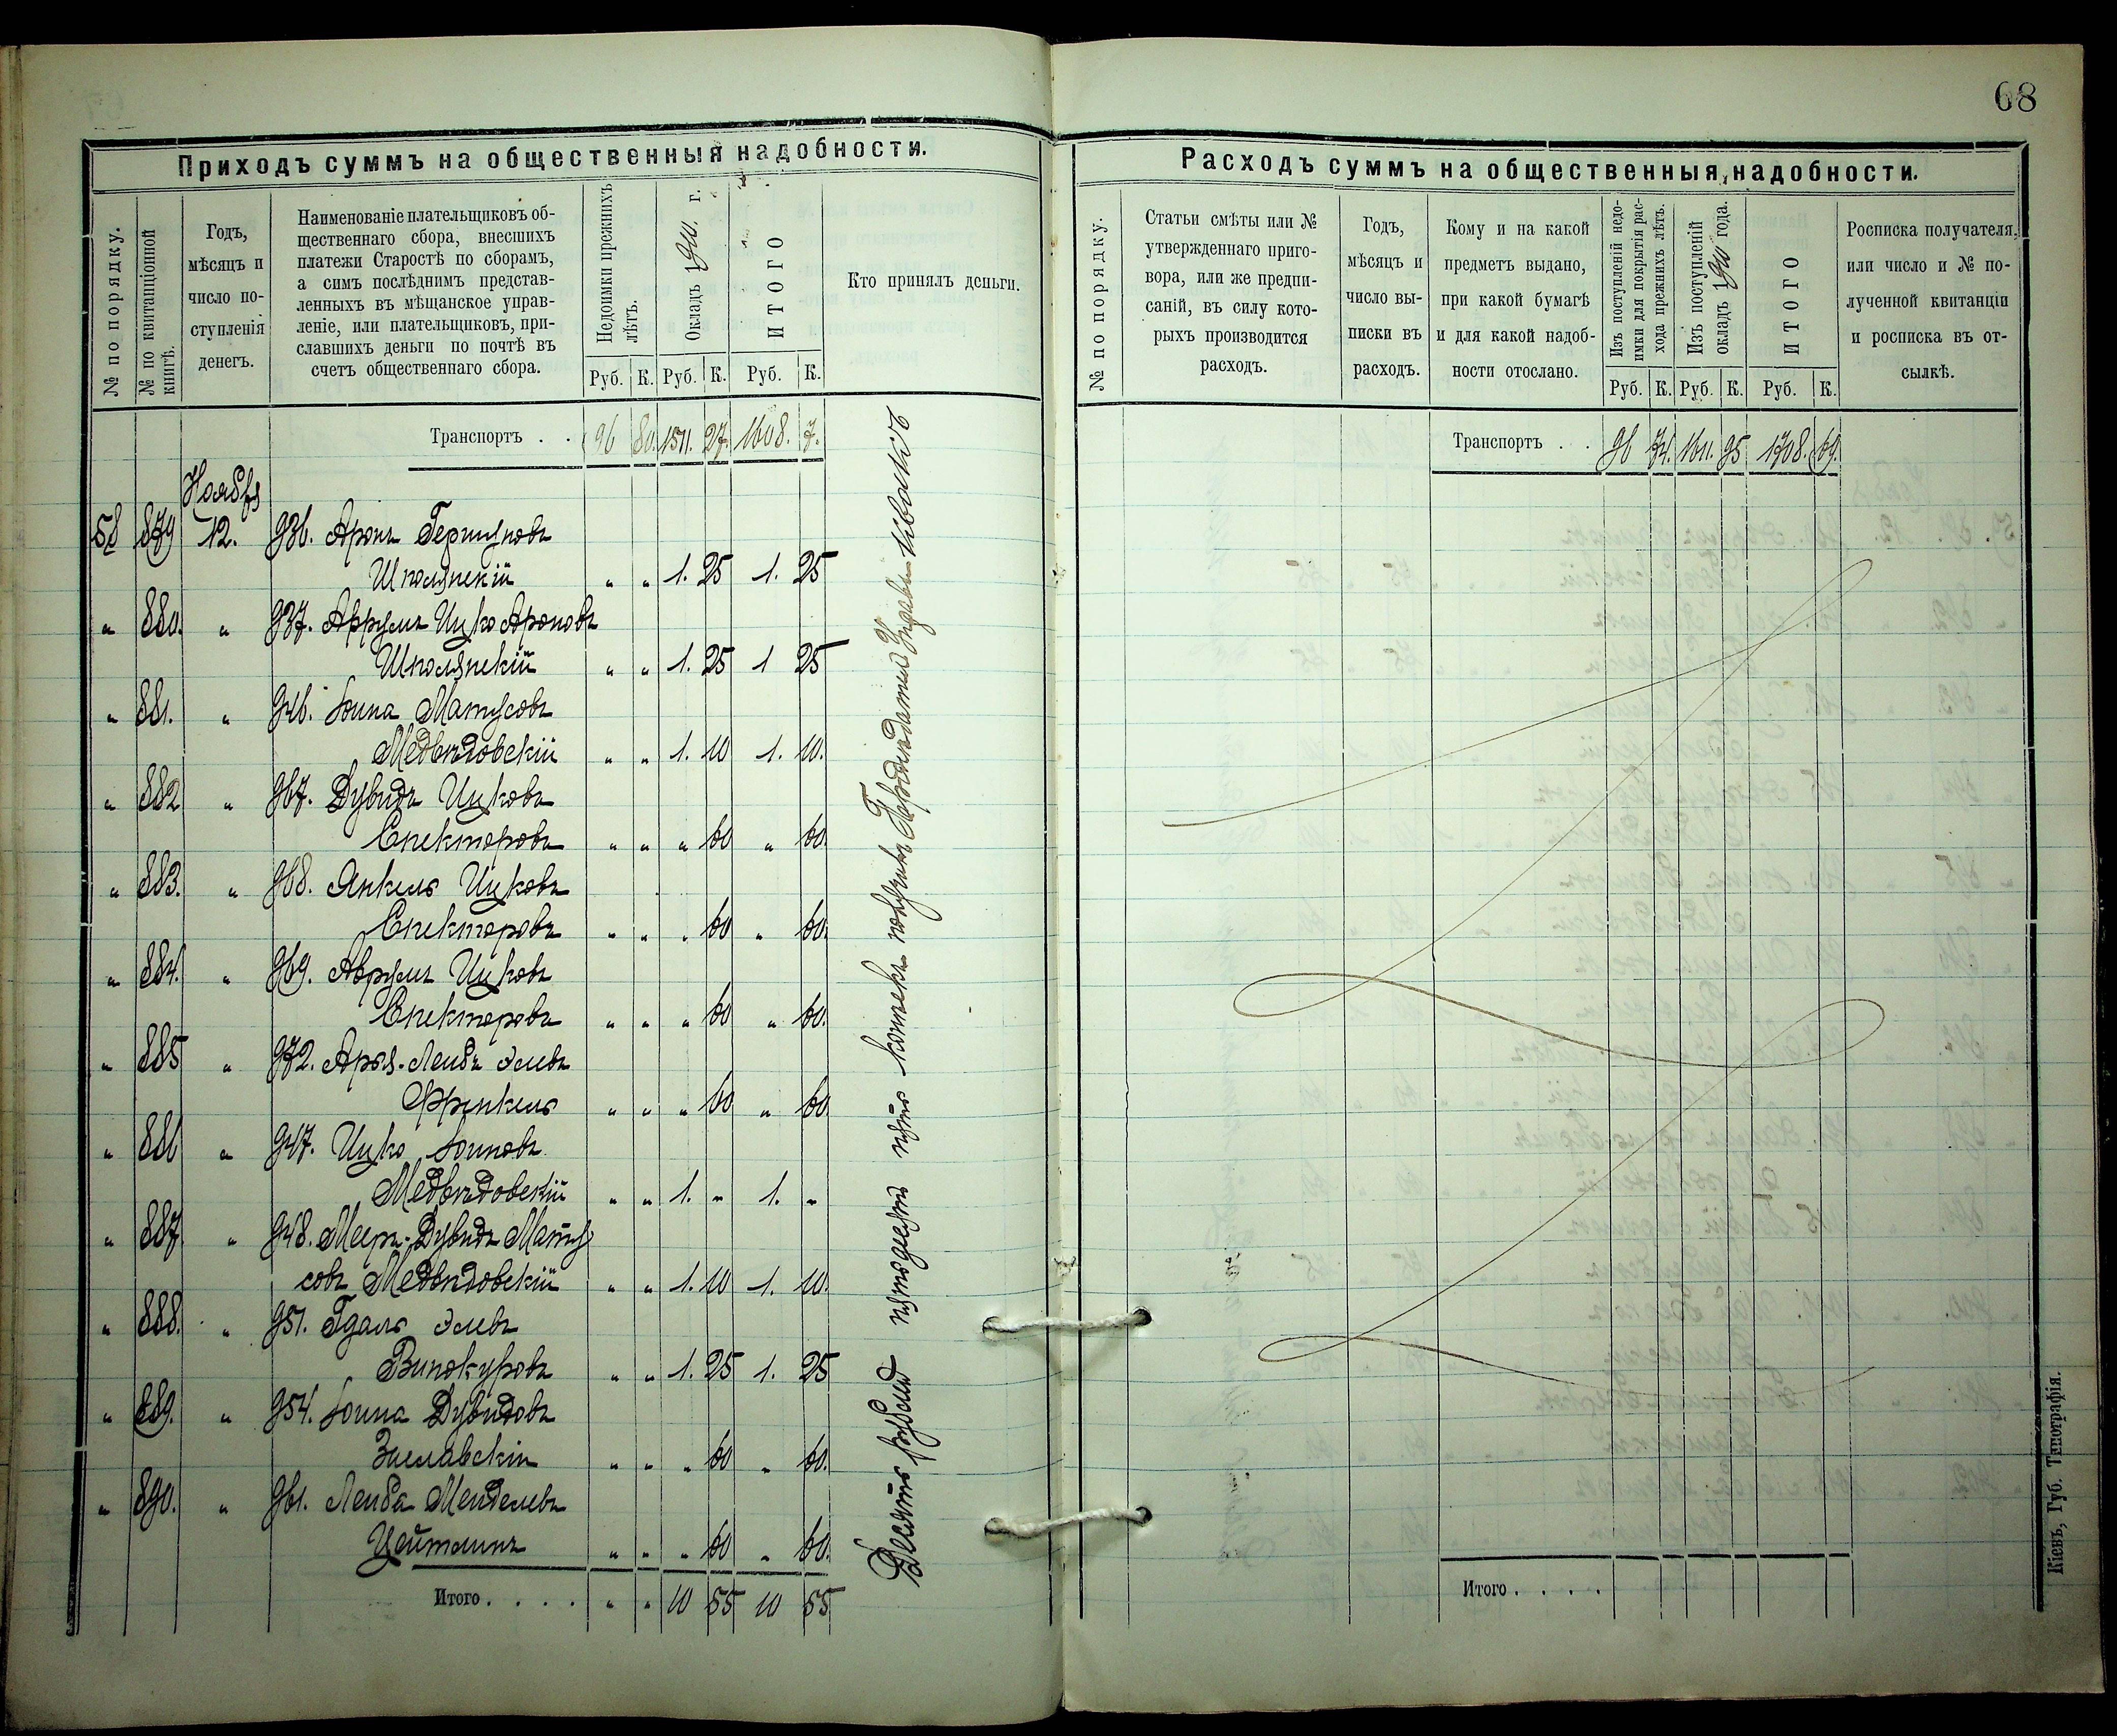 68
Приходъ суммъ на общественныя надобности.
№ по порядку.
№ по квитанціонной книгѣ.
Годъ,
мѣсяцъ и
число по-
ступленія
денегъ.
Наименованіе плательщиковъ об-
щественнаго сбора, внесшихъ
платежи Старостѣ по сборамъ,
а симъ послѣднимъ представ-
ленныхъ въ мѣщанское управ-
леніе, или плательщиковъ, при-
славшихъ деньги по почтѣ въ
счетъ общественнаго сбора.
Недоимки прежнихъ
лѣтъ.
Окладъ 1910. г.
ИТОГО
Руб. К. Руб. К. Руб. К.
Кто принялъ деньги.
Транспортъ . . 96 80. 1511. 27. 1608. 7.
Ноября
58 879 12. 936. Аронъ Гершуновъ
Шполянскій „ „ 1. 25 1. 25
„ 880. „ 937. Аврумъ Ицко Ароновъ
Шполянскій „ „ 1. 25 1 25
„ 881. „ 946. Іоина Матусовъ
Медвѣдовскій „ „ 1. 10 1. 10.
„ 882 „ 967. Дувидъ Ицковъ
Спекторовъ „ „ „ 60 „ 60.
„ 883. „ 968. Янкель Ицковъ
Спекторовъ „ „ „ 60 „ 60.
„ 884. „ 969. Аврумъ Ицковъ
Спекторовъ „ „ „ 60 „ 60.
„ 885 „ 972. Арья-Лейбъ Элевъ
Френкель „ „ „ 60 „ 60
„ 886 „ 947. Ицко Іоиновъ
Медвѣдовскій „ „ 1. „ 1. „
„ 887 „ 948. Меер-Дувидъ Матус
совъ Медвѣдовскій „ „ 1. 10 1. 10.
„ 888. „ 951. Гдаль Элевъ
Винокуровъ „ „ 1. 25 1. 25
„ 889. „ 954. Іоина Дувидовъ
Заславскій „ „ „ 60 „ 60.
„ 890. „ 961. Лейба Менделевъ
Цейтлинъ „ „ „ 60 „ 60.
Итого . . . . „ „ 10 55 10 55
Десять рублей пятьдесятъ пять копѣекъ получилъ
Расходъ суммъ на общественныя надобности.
№ по порядку.
Статьи смѣты или №
утвержденнаго приго-
вора, или же предпи-
саній, въ силу кото-
рыхъ производится
расходъ.
Годъ,
мѣсяцъ и
число вы-
писки въ
расходъ.
Кому и на какой
предметъ выдано,
при какой бумагѣ
и для какой надоб-
ности отослано.
Изъ поступленій недо-
имки для покрытія рас-
хода прежнихъ лѣтъ.
Изъ поступленій
окладъ 1910 года.
ИТОГО
Руб. К. Руб. К. Руб. К.
Росписка получателя,
или число и № по-
лученной квитанціи
и росписка въ от-
сылкѣ.
Транспортъ . . 96 74. 1611. 95 1708. 69.
Итого . . . .
Кіевъ, Губ. Типографія.